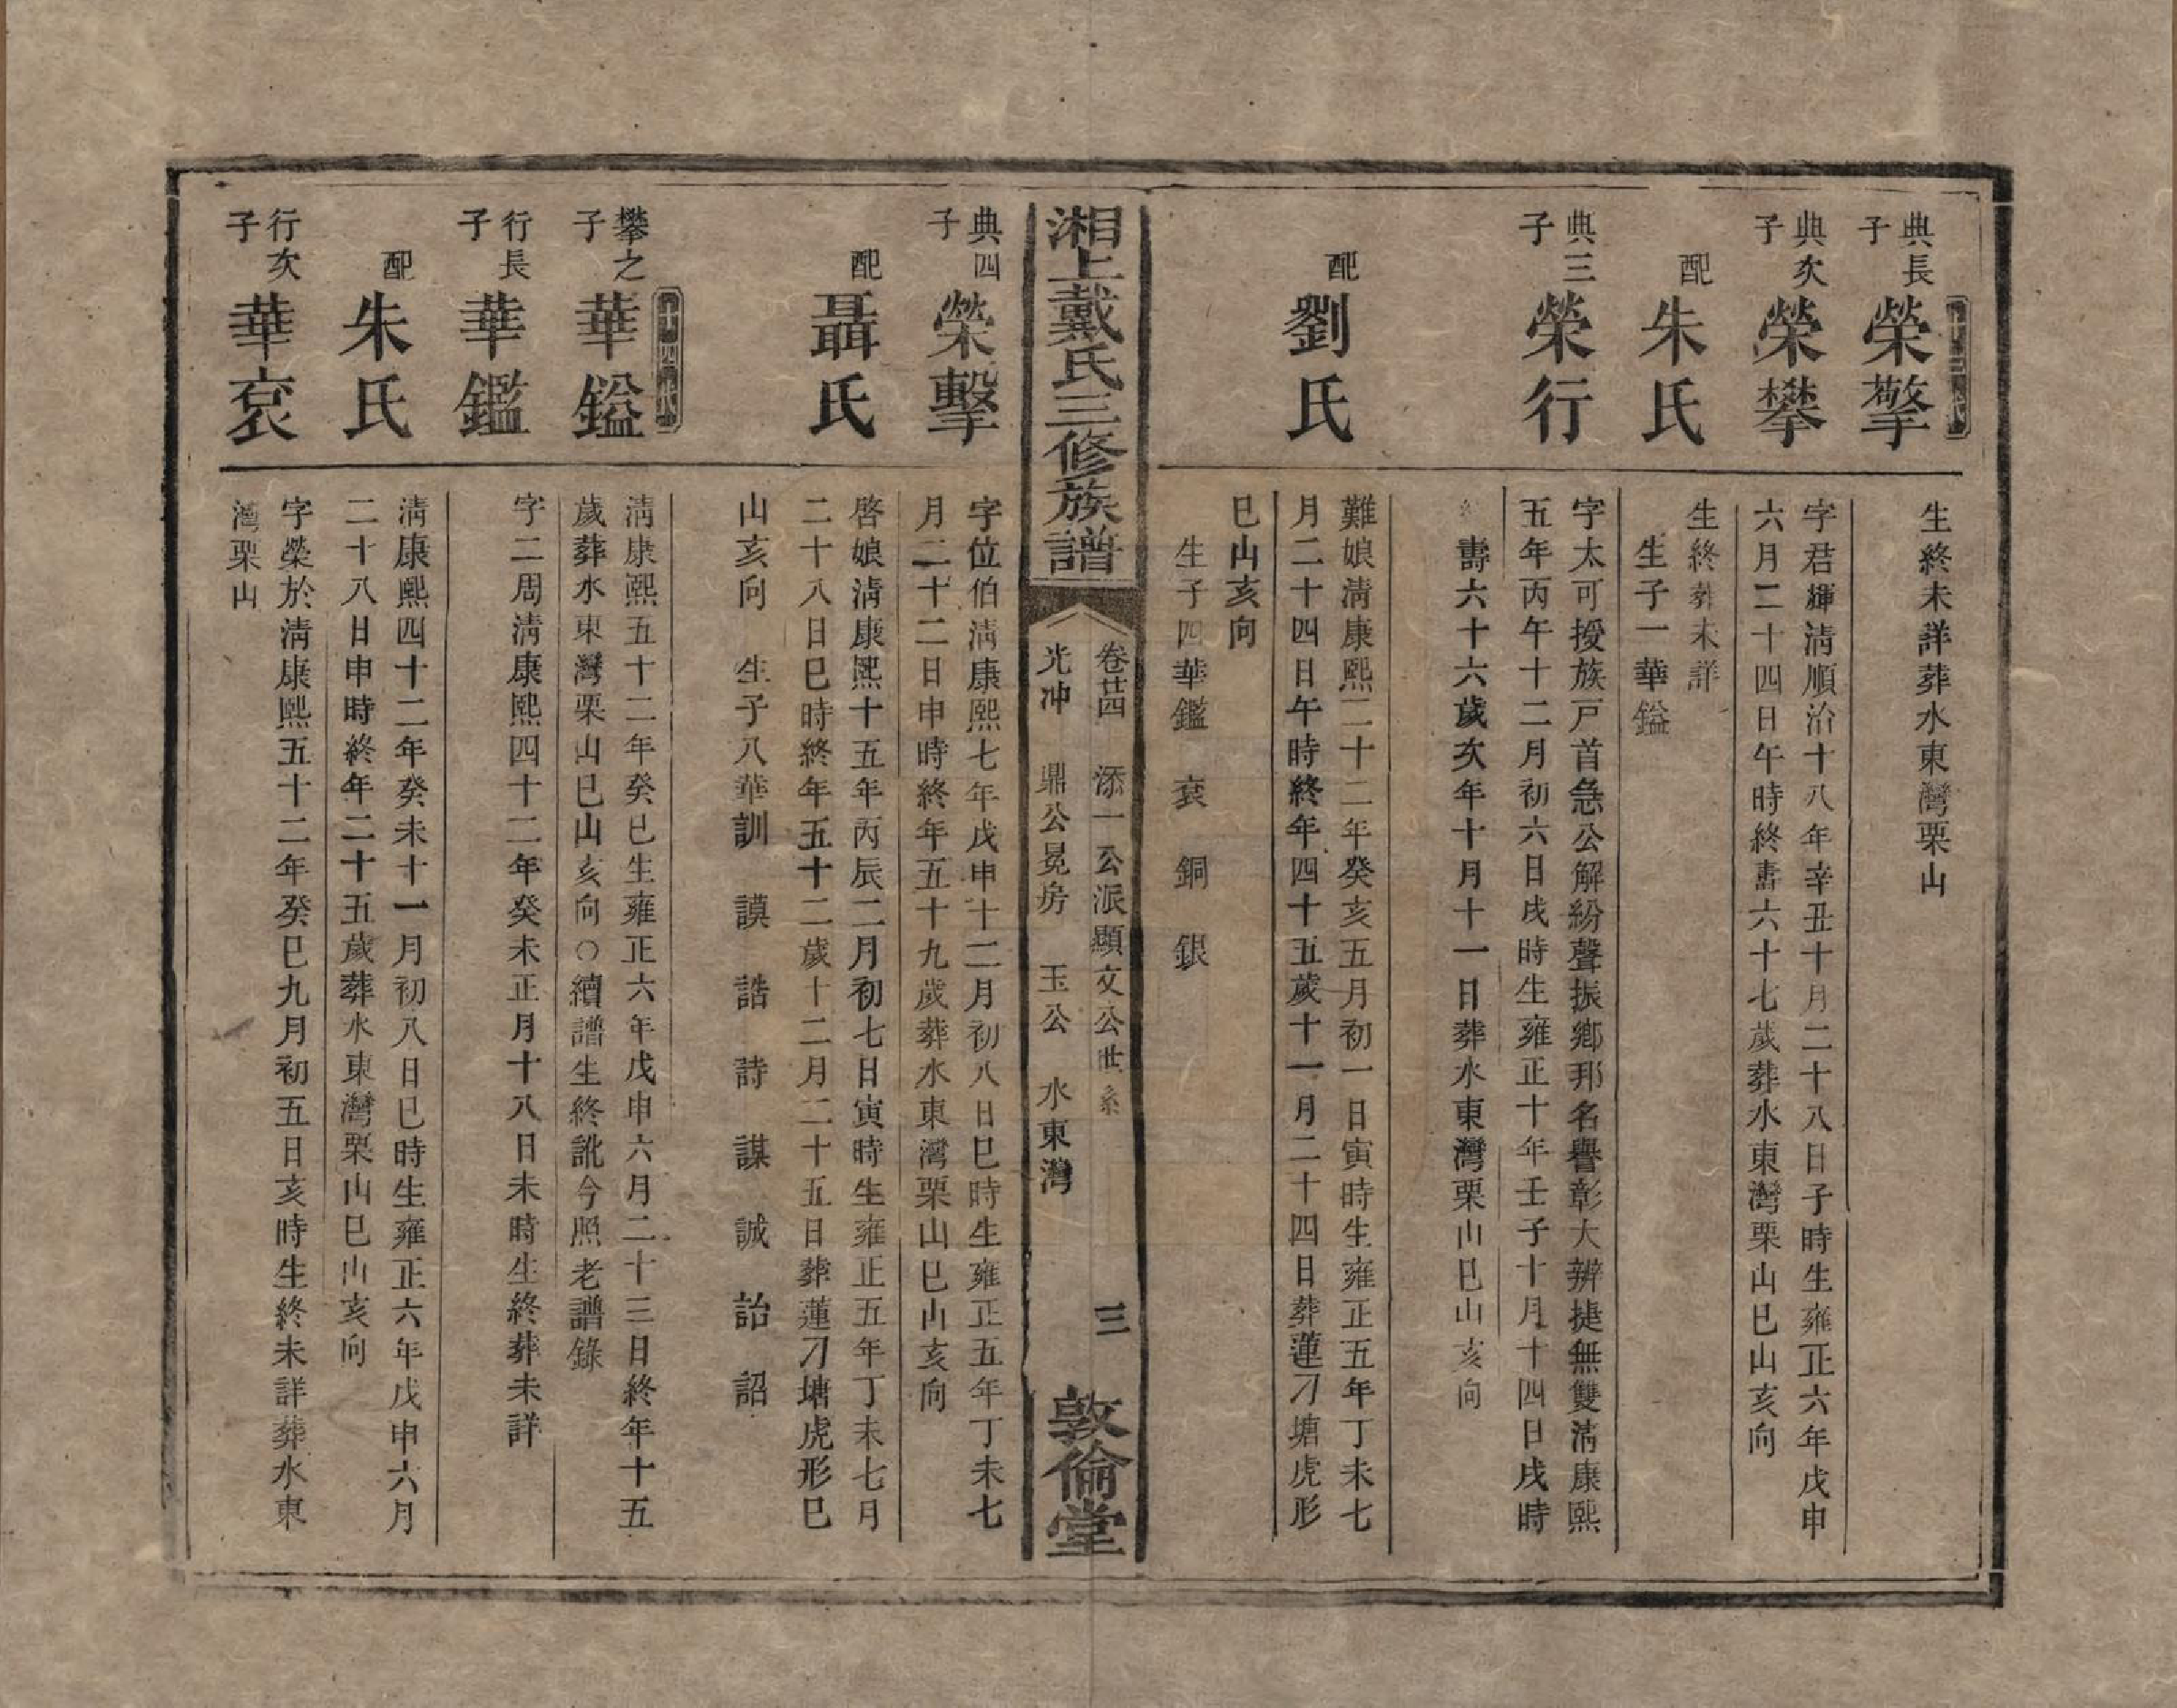 典長子
榮擎
生終未詳葬水東灣栗山
典次子
榮攀
字君輝淸順治十八年辛丑十月二十八日子時生雍正六年戊申
六月二十四日午時終壽六十七歲葬水東灣栗山巳山亥向
配
朱氏
生終葬未詳
生子一華鎰
典三子
榮行
字太可授族戸首急公解紛聲振鄕邦名譽彰大辨捷無雙淸康熙
五年丙午十二月初六日戌時生雍正十年壬子十月十四日戌時
終壽六十六歲次年十月十一日葬水東灣栗山巳山亥向
配
劉氏
難娘淸康熙二十二年癸亥五月初一日寅時生雍正五年丁未七
月二十四日午時終年四十五歲十一月二十四日葬蓮刀塘虎形
巳山亥向
生子四華鑑 袞 銅 銀
湘上戴氏三修族譜
卷廿四 添一公派顯文公世系
光冲 鼎公冕房 玉公 水東灣
三
敦倫堂
典四子
榮擊
字位伯淸康熙七年戊申十二月初八日巳時生雍正五年丁未七
月二十二日申時終年五十九歲葬水東灣栗山巳山亥向
配
聶氏
啓娘淸康熙十五年丙辰二月初七日寅時生雍正五年丁未七月
二十八日巳時終年五十二歲十二月二十五日葬蓮刀塘虎形巳
山亥向 生子八華訓 謨 誥 詩 謀 誠 詒 詔
攀之子
華鎰
淸康熙五十二年癸巳生雍正六年戊申六月二十三日終年十五
歲葬水東灣栗山巳山亥向○續譜生終訛今照老譜錄
行長子
華鑑
字二周淸康熙四十二年癸未正月十八日未時生終葬未詳
配
朱氏
淸康熙四十二年癸未十一月初八日巳時生雍正六年戊申六月
二十八日申時終年二十五歲葬水東灣栗山巳山亥向
行次子
華袞
字榮於淸康熙五十二年癸巳九月初五日亥時生終未詳葬水東
灣栗山